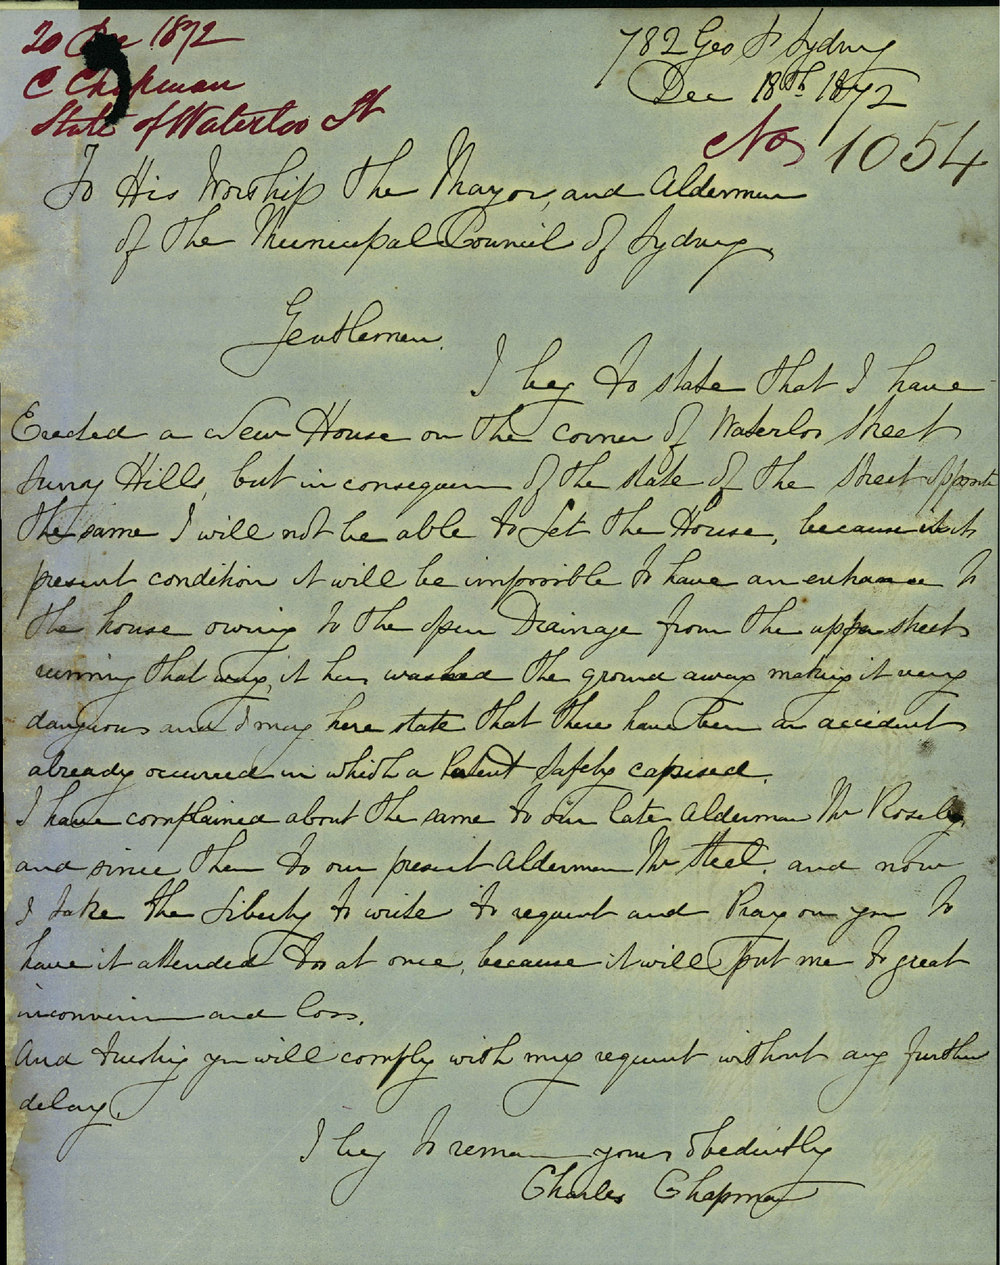 20 Dec 1872
C Chapman
State of Waterloo St
782 Geo St Sydney
Dec 18th 1872
No 1054
To His Worship the Mayor, and Aldermen
of the Municipal Council of Sydney
Gentlemen.
I beg to state that I have
Erected a New House on the corner of Waterloo Street
Surry Hills, but in consequen of the state of the Street opposite
the same I will not be able to Let the House, because in its
present condition it will be impossible to have an entrance to
the house owing to the open Drainage from the upper street
running that way, it has washed the ground away making it very
dangerous and I may here state that there have been an accident
already occurred in which a Patent Safety capsised.
I have complained about the same to our late Alderman Mr Roseby,
and since then to our present Alderman Mr Steel. and now
I take the Liberty to write to request and Pray on you to
have it attended to at once, because it will put me to great
inconvenien and loss.
And trusting you will comply with my request without any further
delay.
I beg to remain yours obediently
Charles Chapman